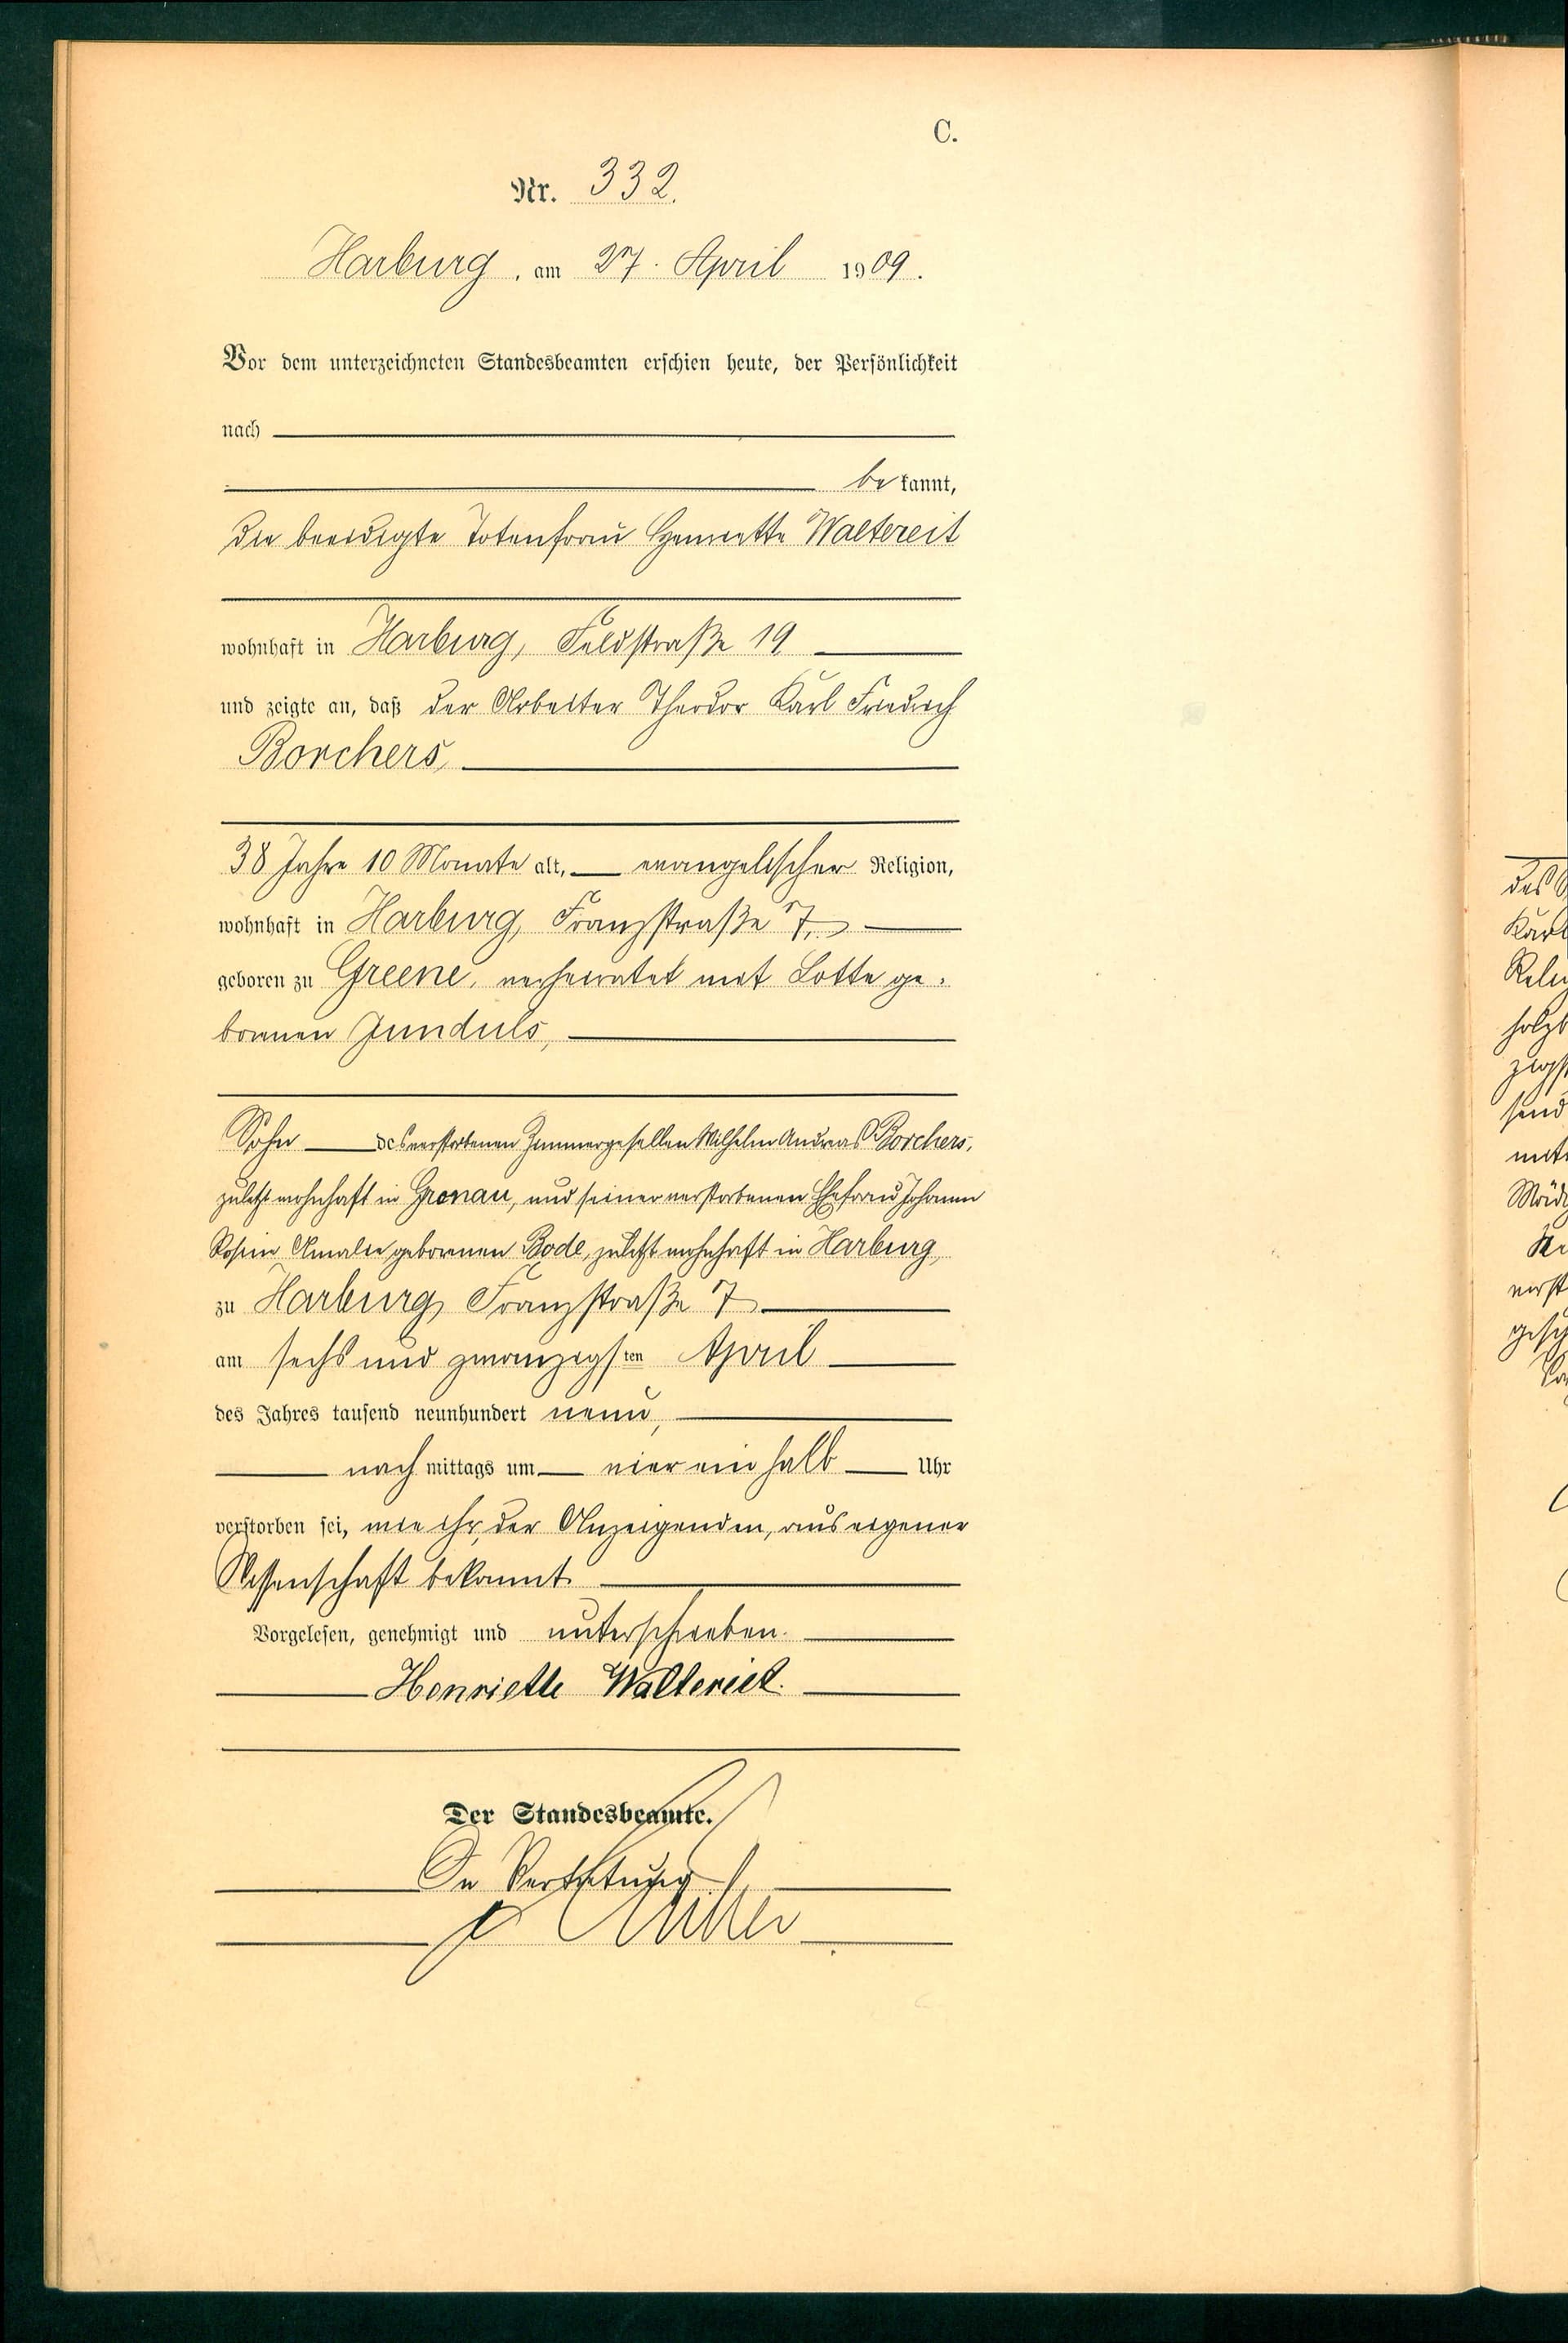 C.
Nr. 332.
Harburg, am 27. April 1909.
Vor dem unterzeichneten Standesbeamten erschien heute, der Persönlichkeit
nach
be kannt,
die beeidigte Totenfrau Henriette Waltereit
wohnhaft in Harburg, Feldstraße 19
und zeigte an, daß der Arbeiter Theodor Karl Friedrich
Borchers,
38 Jahre 10 Monate alt, evangelischer Religion,
wohnhaft in Harburg, Franzstraße 7,
geboren zu Greene, verheiratet mit Lotte ge-
borenen Junduls,
Sohn des verstorbenen Zimmergesellen Wilhelm Andreas Borchers,
zuletzt wohnhaft in Gronau, und seiner verstorbenen Ehefrau Johanne
Rosine Amalie geborenen Bode, zuletzt wohnhaft in Harburg,
zu Harburg, Franzstraße 7
am sechs und zwanzigsten April
des Jahres tausend neunhundert neun,
nach mittags um vier ein halb Uhr
verstorben sei, wie ihr, der Anzeigenden, aus eigener
Wissenschaft bekannt.
Vorgelesen, genehmigt und unterschrieben.
Henriette Waltereit.
Der Standesbeamte.
In Vertretung
des
Karl